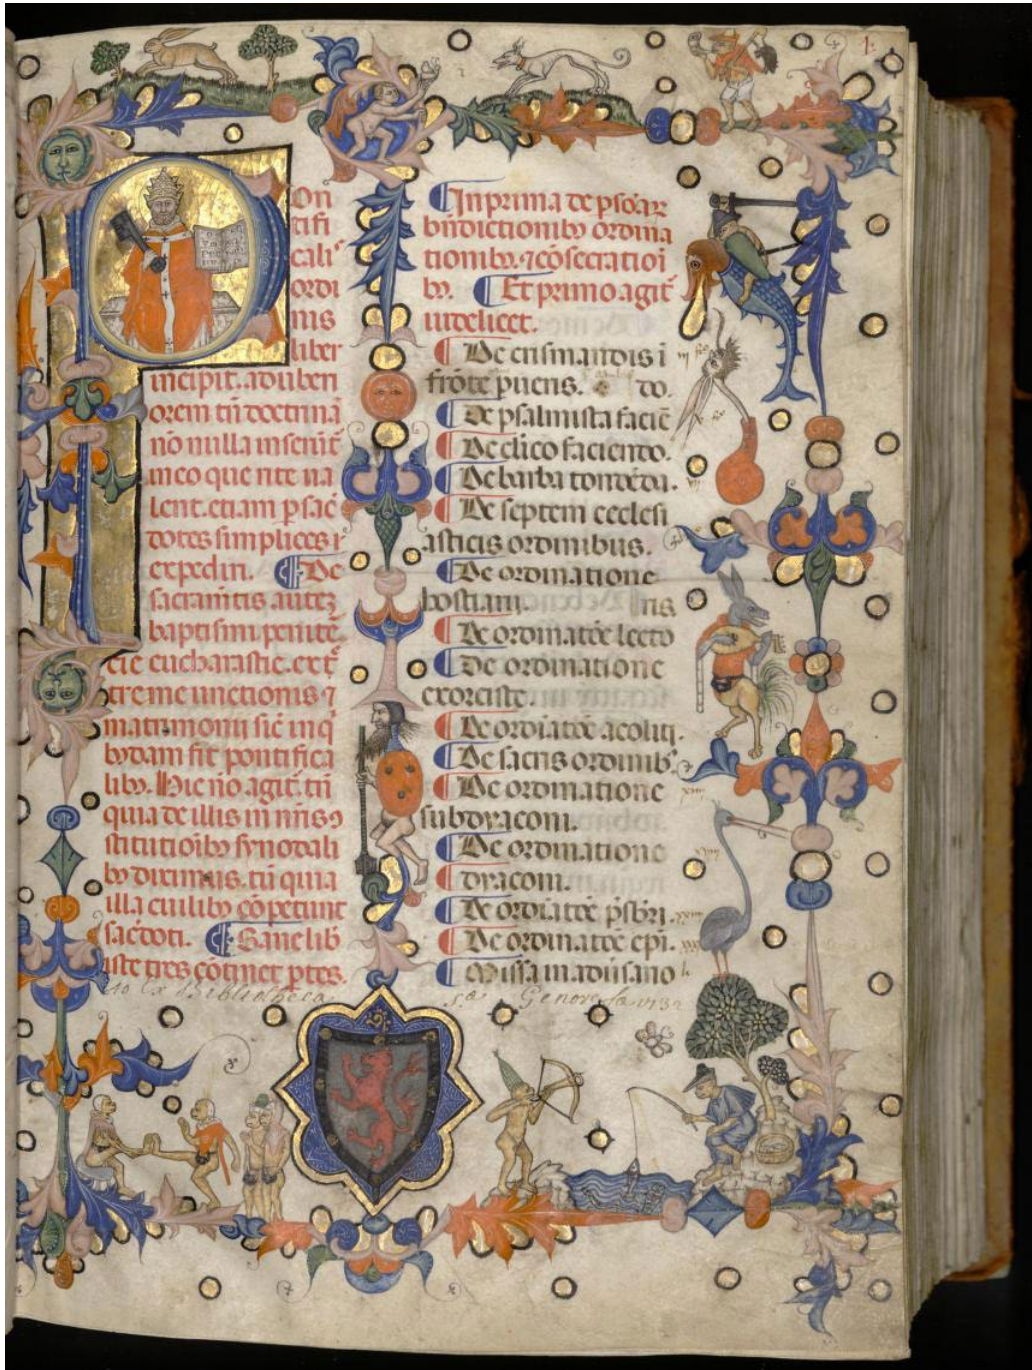 On
tifi
cali⁹
ordi
nis
liber
incipit. ad uberi
orem tn̄ doctrinā
nō nulla inseruit
in eo que rite ua
lent. etiam p sac̄
dotes simplices
expediri. De
sacram̄tis autez
baptismi penitē
tie eucharastie. ext̄
treme unctionis ⁊
matrimonii sic̄ in q̄
bꝰdam fit pontifica
libꝫ. Hic nō agit̄. tū
quia de illis in nr̄is ꝯ
stitutiōibꝫ synodali
bꝫ diximus. tū quia
illa ciuilibꝫ cōpetunt
sac̄doti. Sane lib̄
iste tres cōtinet ptes.
In prima de
bn̄dictionibꝫ ordina
tionibꝫ. ⁊ cōsecratioī
bꝫ. Et primo agit̄
uidelicet.
De crismandis ī
frōte pueris. do.
De psalmista faciē
De clico faciendo.
De barba tondēda.
De septem ecclesi
asticis ordinibus.
De ordinatione
hostiarii. ris
De ordinatōe lecto
De ordinatione
exorciste.
De ordiatōe acoliti.
De sacris ordinib⁹.
De ordinatione
subdyaconi.
De ordinatione
dyaconi.
De ordiatōe psbri.
De ordinatōe epi.
Missa in aniūsario
Ex Bibliotheca Sæ Genovefæ 1732
1.